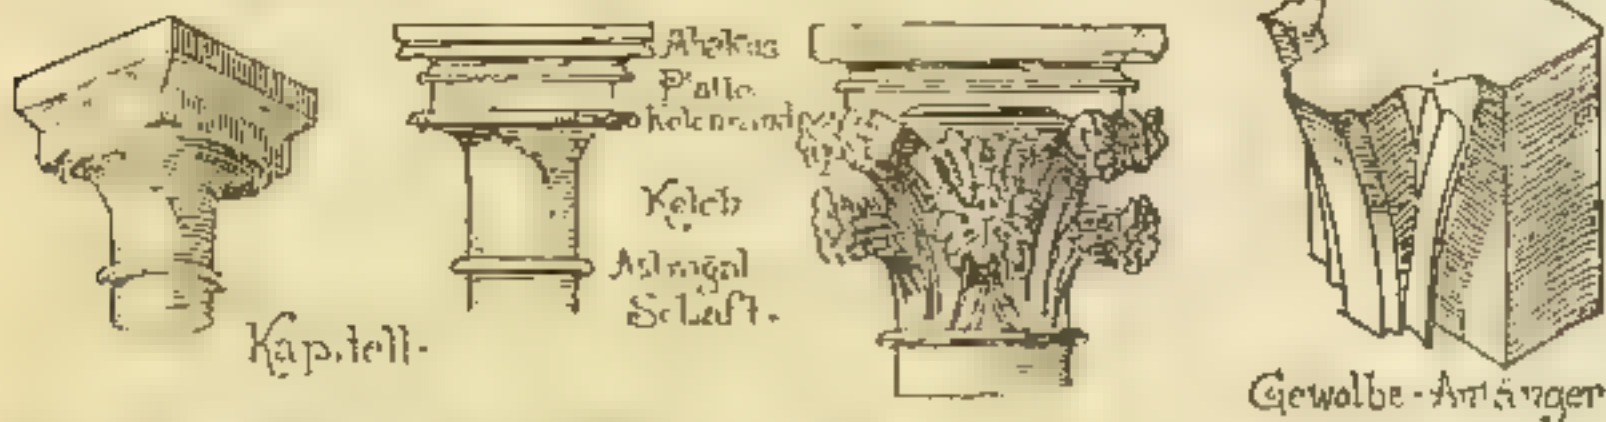 Abakus
Platte
Kelchrand
Kelch
Astragal
Schaft.
Kapitell.
Gewölbe-Anfänger